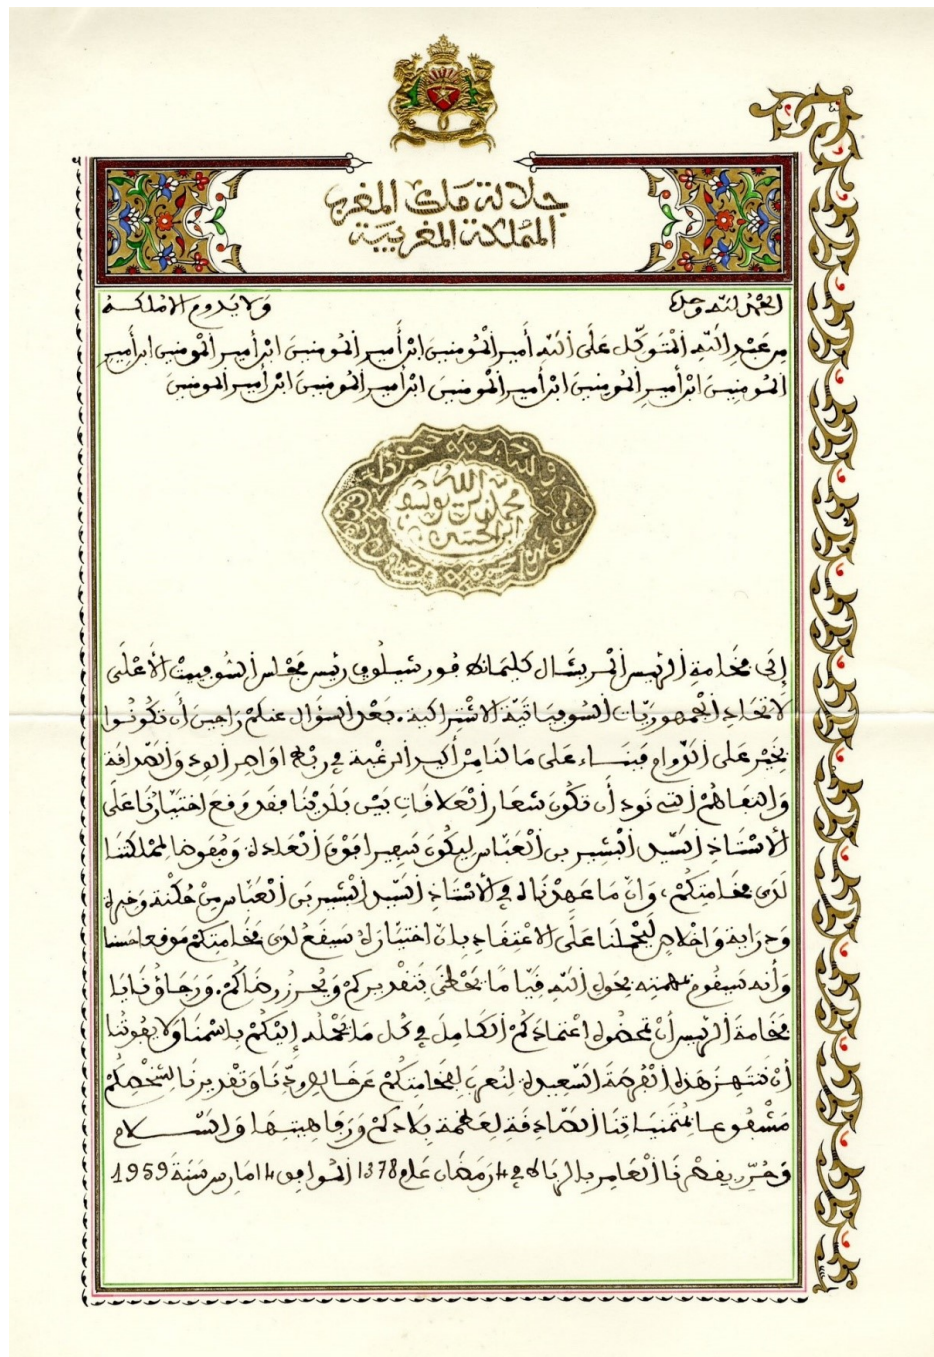 جلالة ملك المغرب
المملكة المغربية
الحمد لله وحده ولا يدوم الا ملكه
من عبد الله المتوكل على الله أمير المومنين ابن أمير المومنين ابن أمير المومنين ابن أمير
المومنين ابن أمير المومنين ابن أمير المومنين ابن أمير المومنين ابن أمير المومنين
الله
محمد بن يوسف
ابن الحسن
إلى فخامة الرئيس المريشال كليمانط فورشيلوف رئيس مجلس السوفييت الأعلى
لاتحاد الجمهوريات السوفياتية الاشتراكية. بعد السؤال عنكم راجين أن تكونوا
بخير على الدوام فبناء على ما لنا من أكيد الرغبة في ربط اواصر الود والصداقة
والتفاهم التي نود أن تكون شعار العلاقات بين بلدينا فقد وقع اختيارنا على
الأستاذ السيد البشير بن العباس ليكون سفيرا فوق العادة ومفوضا لمملكتنا
لدى فخامتكم، وان ما عهدناه في الأستاذ السيد البشير بن العباس من حنكة وخبرة
ودراية واخلاص ليحملنا على الاعتقاد بان اختياره سيقع لدى فخامتكم موقعا حسنا
وأنه سيقوم بمهمته بحول الله قياما يحظى بتقديركم ويحرز رضاكم. ورجاؤنا يا
فخامة الرئيس أن تمنحوه اعتمادكم الكامل في كل ما يحمله إليكم باسمنا ولا يفوتنا
أن ننتهز هذه الفرصة السعيدة لنعرب لفخامتكم عن خالص ودنا وتقديرنا لشخصكم
مشفوعا بتمنياتنا الصادقة لعظمة بلادكم ورفاهيتها والسلام
وحرر بقصرنا العامر بالرباط في 4 رمضان عام 1378 الموافق 14 مارس سنة 1959